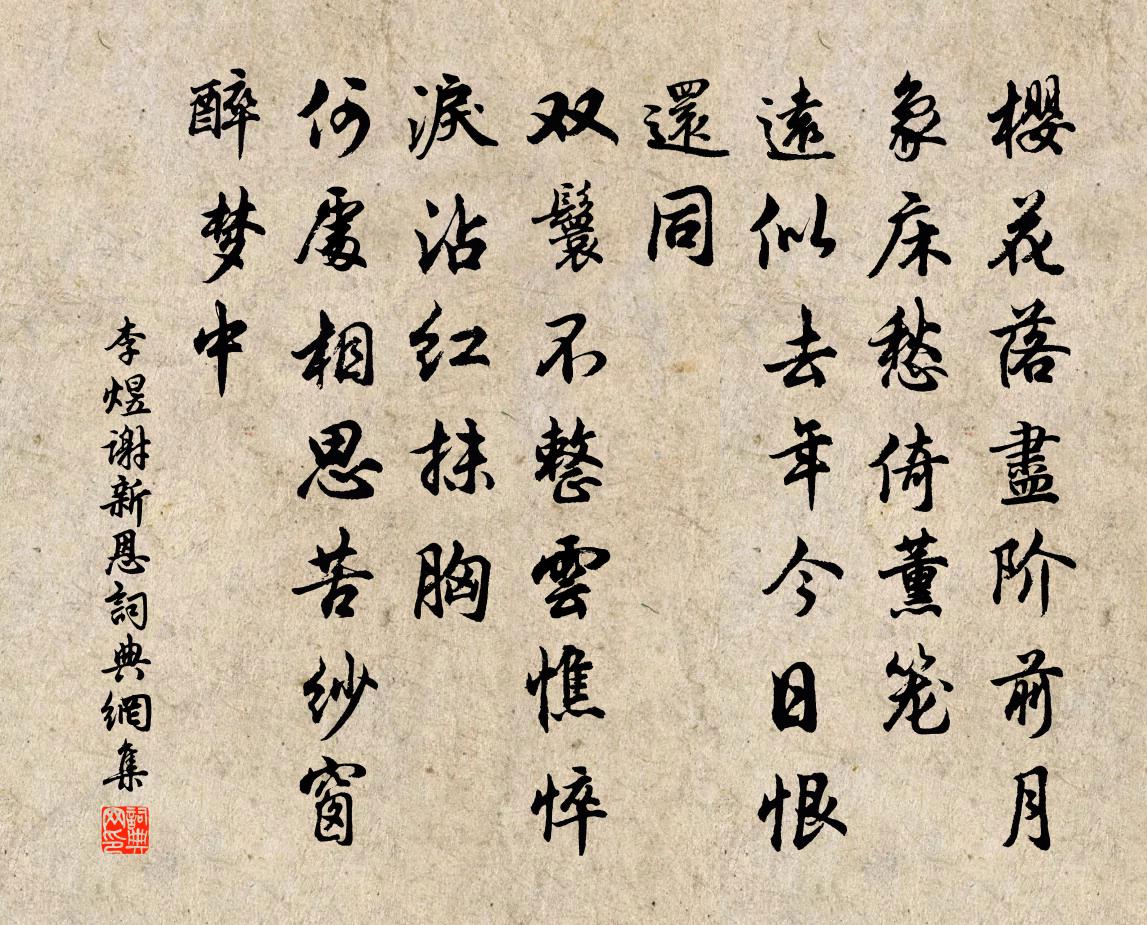 櫻花落盡阶前月
象床愁倚薰笼
遠似去年今日恨
還同
双鬟不整雲憔悴
淚沾红抹胸
何處相思苦
纱窗
醉梦中
李煜谢新恩詞典網集
詞典网印